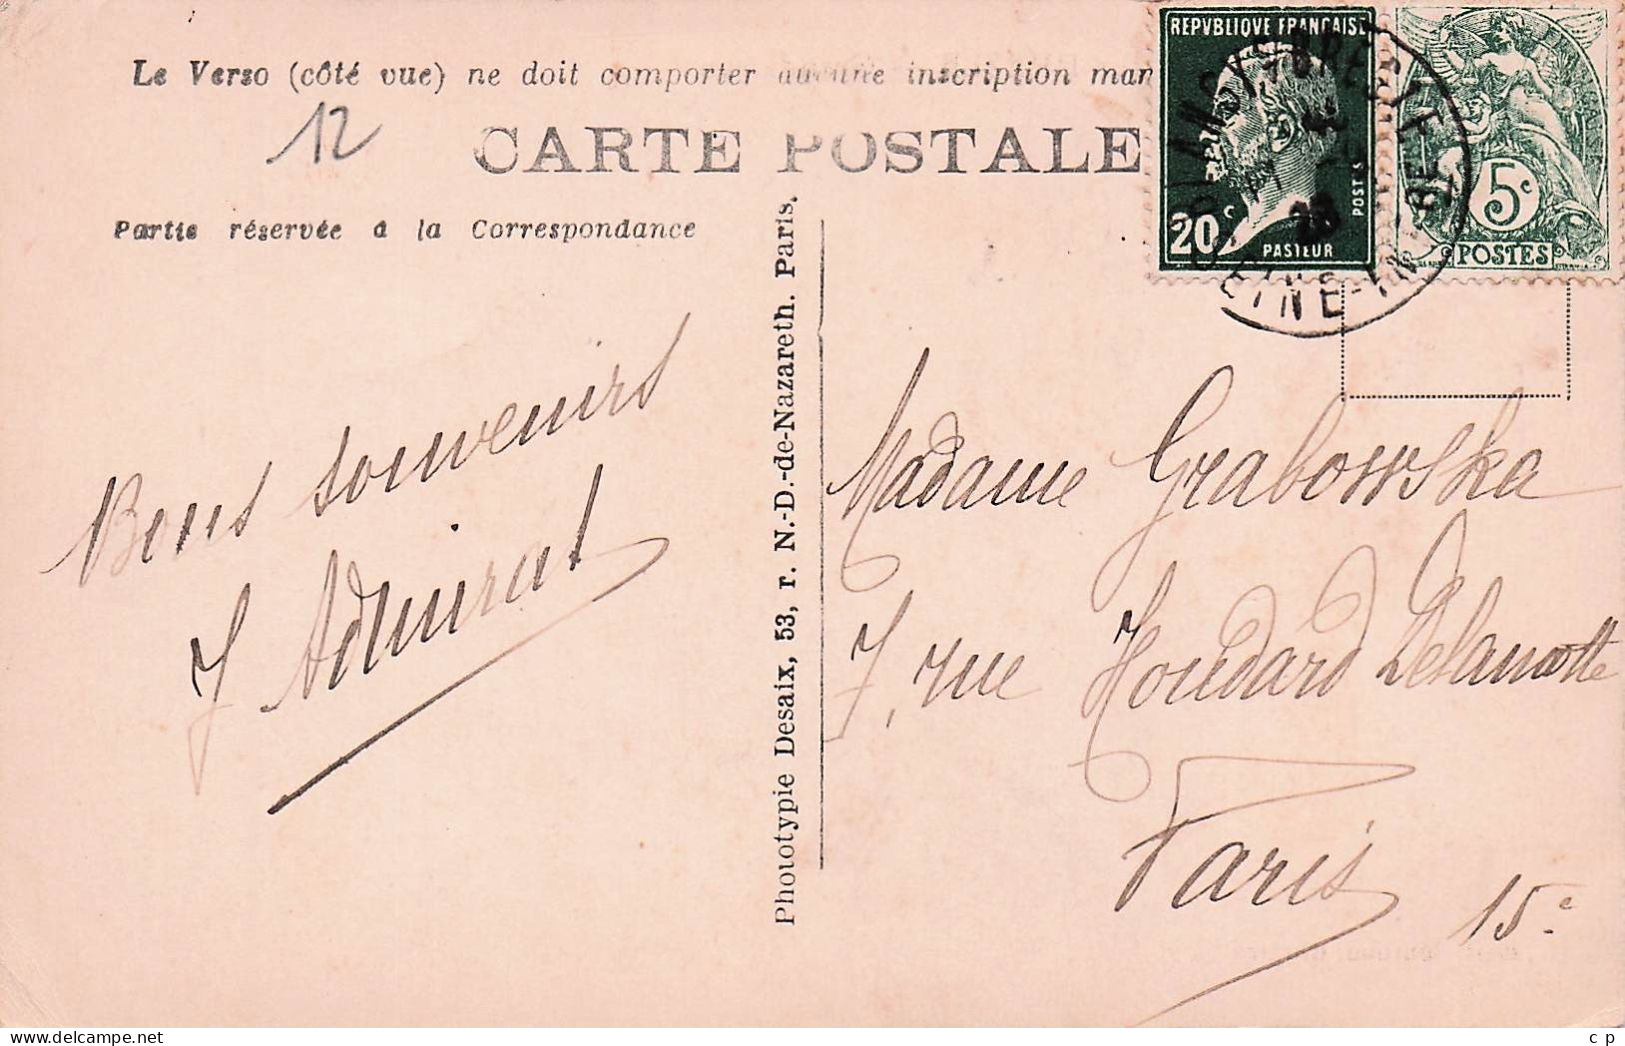 Le Verso (côté vue) ne doit comporter aucune inscription man
12
CARTE POSTALE
Partie réservée à la Correspondance
REPVBLIQUE FRANÇAISE
20c
POSTES
PASTEUR
5c
POSTES
SEINE-INF
Bons souvenirs
J Admirat
Phototypie Desaix, 53, r. N.-D.-de-Nazareth. Paris.
Madame Grabowska
7, rue Houdard Delamotte
Paris
15e
c p